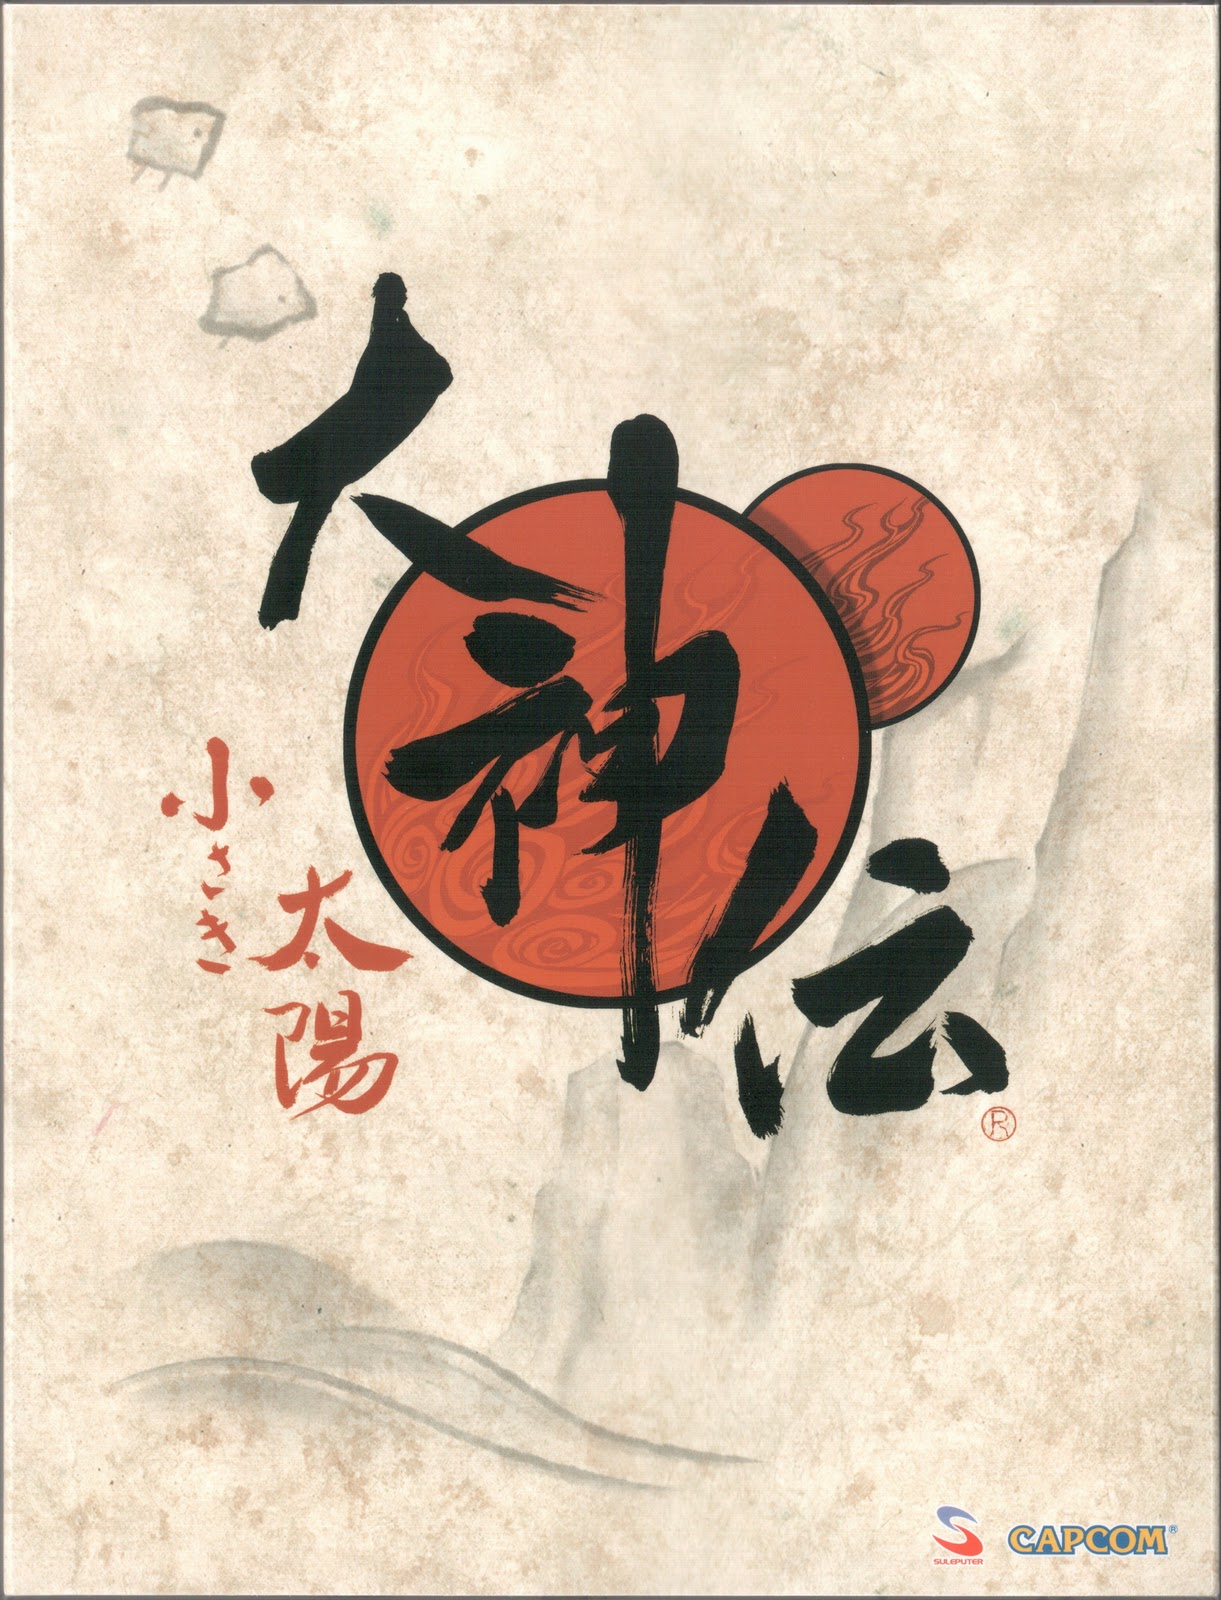 大神伝
小さき
太陽
®
SULEPUTER
CAPCOM®